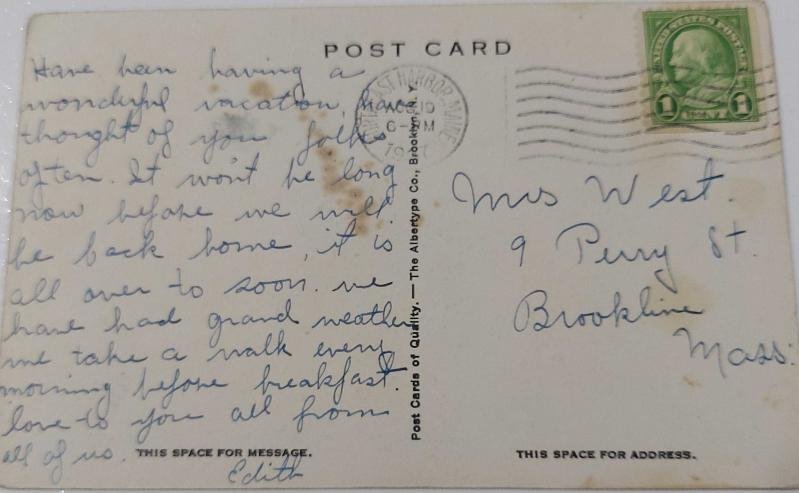 POST CARD
Have been having a
wonderful vacation, have
thought of you folks
often. It won't be long
now before we will
be back home, it is
all over to soon. we
have had grand weather
we take a walk every
morning before breakfast.
love to you all from
all of us.
Edith
THIS SPACE FOR MESSAGE.
Post Cards of Quality. — The Albertype Co., Brooklyn, N. Y.
EAST HARBOR, MAINE
AUG 10
6-PM
UNITED STATES POSTAGE
1 1
Mrs West.
9 Perry St.
Brookline
Mass.
THIS SPACE FOR ADDRESS.